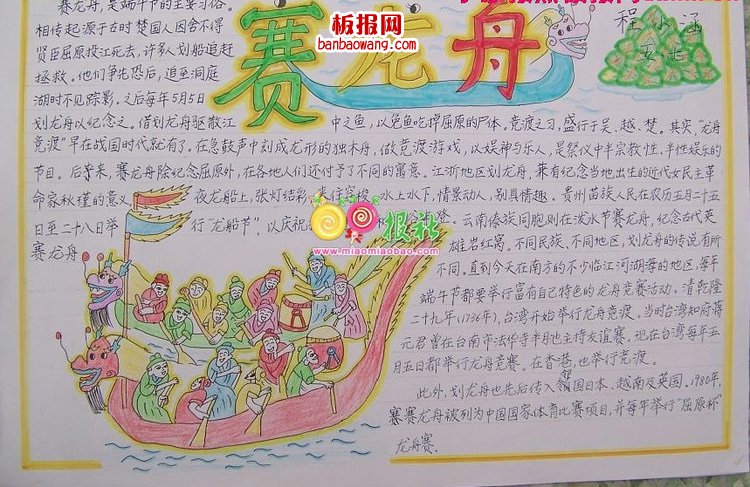 板报网
banbaowang.com
赛龙舟
程小涵
五
赛龙舟，是端午节的主要习俗。
相传起源于古时楚国人因舍不得
贤臣屈原投江死去，许多人划船追赶
拯救。他们争先恐后，追至洞庭
湖时不见踪影。之后每年5月5日
划龙舟以纪念之。借划龙舟驱散江
中之鱼，以免鱼吃掉屈原的尸体。竞渡之习，盛行于吴、越、楚。其实，“龙舟
竞渡”早在战国时代就有了。在急鼓声中刻成龙形的独木舟，做竞渡游戏，以娱神与乐人，是祭仪中半宗教性、半性娱乐的
节目。后来，赛龙舟除纪念屈原外，在各地人们还付予了不同的寓意。江浙地区划龙舟，兼有纪念当地出生的近代女民主革
命家秋瑾的意义。夜龙船上，张灯结彩，来往穿梭，水上水下，情景动人，别具情趣。贵州苗族人民在农历五月二十五
日至二十八日举行“龙船节”，以庆祝
云南傣族同胞则在泼水节赛龙舟，纪念古代英
赛龙舟
雄岩红窝。不同民族、不同地区，划龙舟的传说有所
不同。直到今天在南方的不少临江河湖海的地区，每年
端午节都要举行富有自己特色的龙舟竞赛活动。清乾隆
二十九年(1736年)，台湾开始举行龙舟竞渡。当时台湾知府蒋
元君曾在台南市法华寺半月池主持友谊赛。现在台湾每年五
月五日都举行龙舟竞赛，在香港，也举行竞渡。
此外，划龙舟也先后传入邻国日本、越南及英国。1980年，
赛龙舟被列为中国国家体育比赛项目，并每年举行“屈原杯”
龙舟赛。
报社
www.miaomiaobao.com